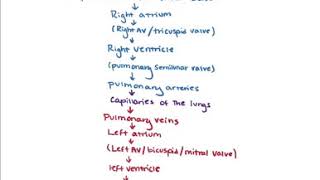 Right atrium
(Right AV/tricuspid valve)
Right ventricle
(pulmonary semilunar valve)
pulmonary arteries
Capillaries of the lungs
Pulmonary veins
Left atrium
(Left AV/bicuspid/mitral valve)
left ventricle